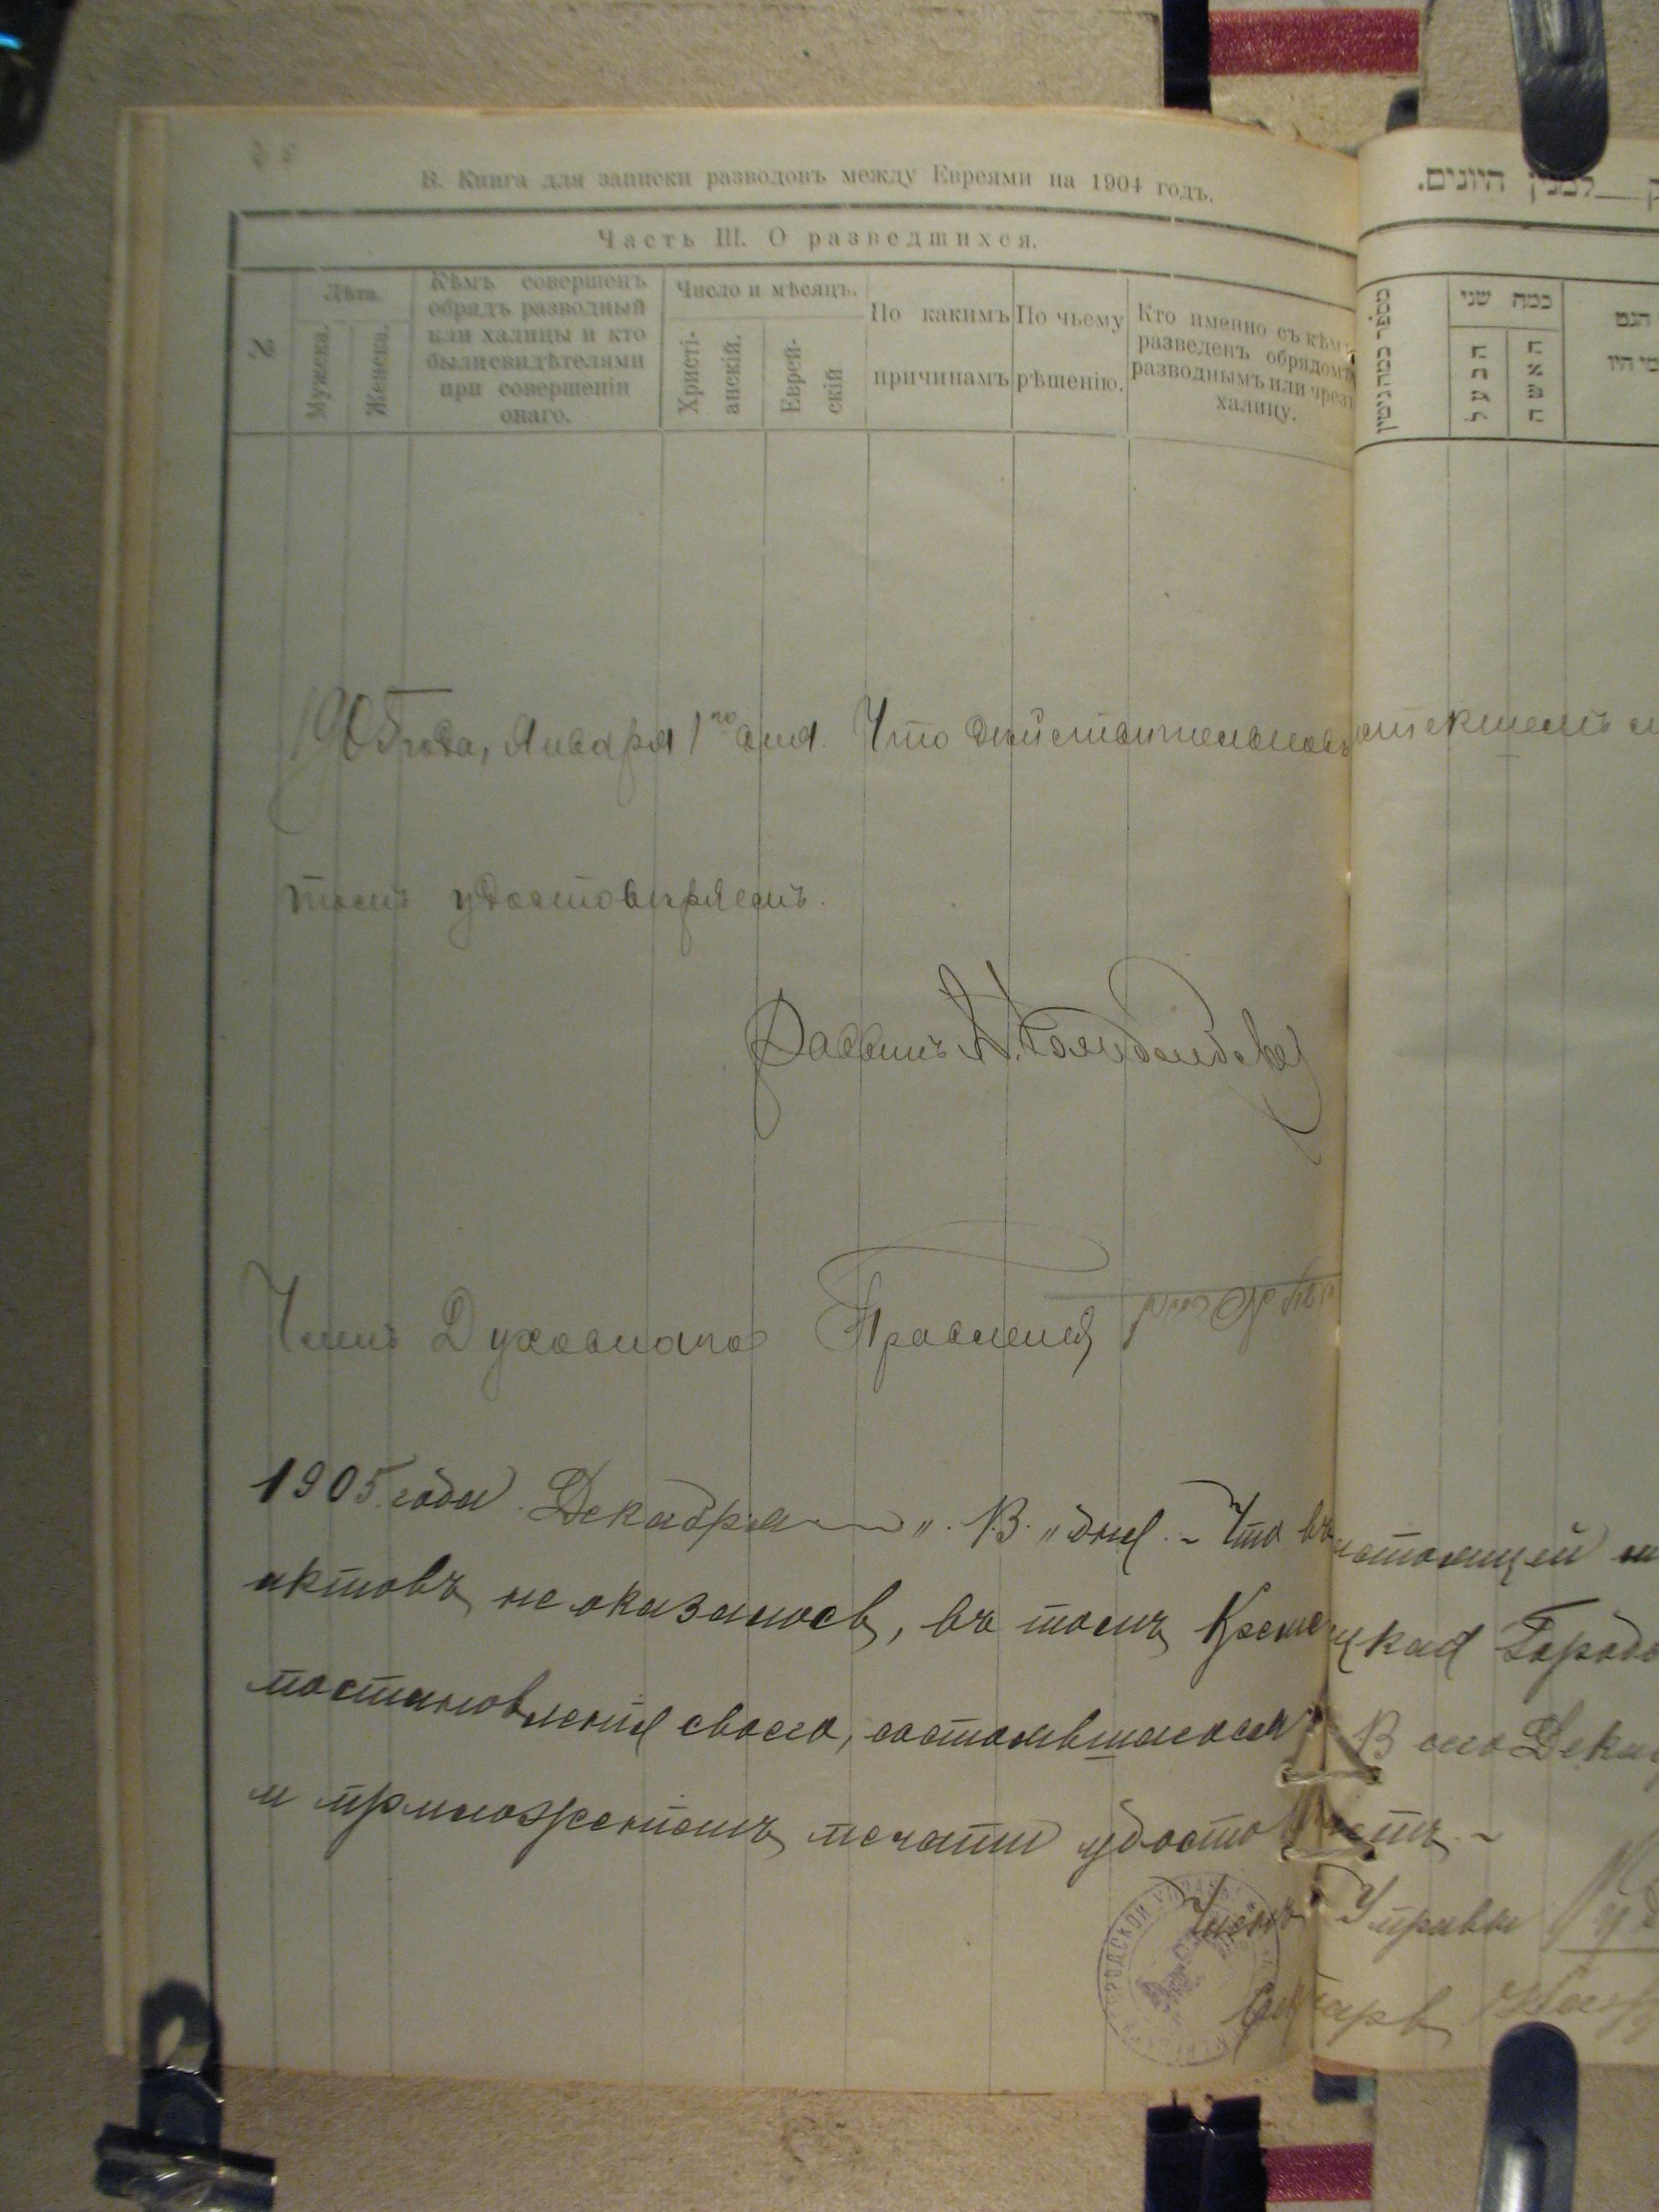 В. Книга для записки разводовъ между Евреями на 1904 годъ.
למנין היונים.
Часть III. О разведшихся.
Лѣта.
Мужеска.
Женска.
Кѣмъ совершенъ
обрядъ разводный
или халицы и кто
были свидѣтелями
при совершеніи
онаго.
Число и мѣсяцъ.
Христі-
анскій.
Еврей-
скій
По какимъ
причинамъ
По чьему
рѣшенію.
Кто именно съ кѣмъ
разведенъ обрядомъ
разводнымъ или чрезъ
халицу.
מספר כמה גיטין
כמה שני
הבעל
האשה
הגט
מי היו
1905 года, Января 1го дня. Что дѣйствительно въ истекшемъ
томъ удостовѣряемъ.
Раввинъ
Членъ Духовнаго Правленія
1905 года Декабря " 13 " дня. Что въ настоящей
актовъ не оказалось, въ томъ Кременецкая Городс
постановленія своего, состоявшагося 13 сего Дека
и приложеніемъ печати удосто
Членъ Управы
Секретарь
ГОРОДСКОЙ УПРАВЫ